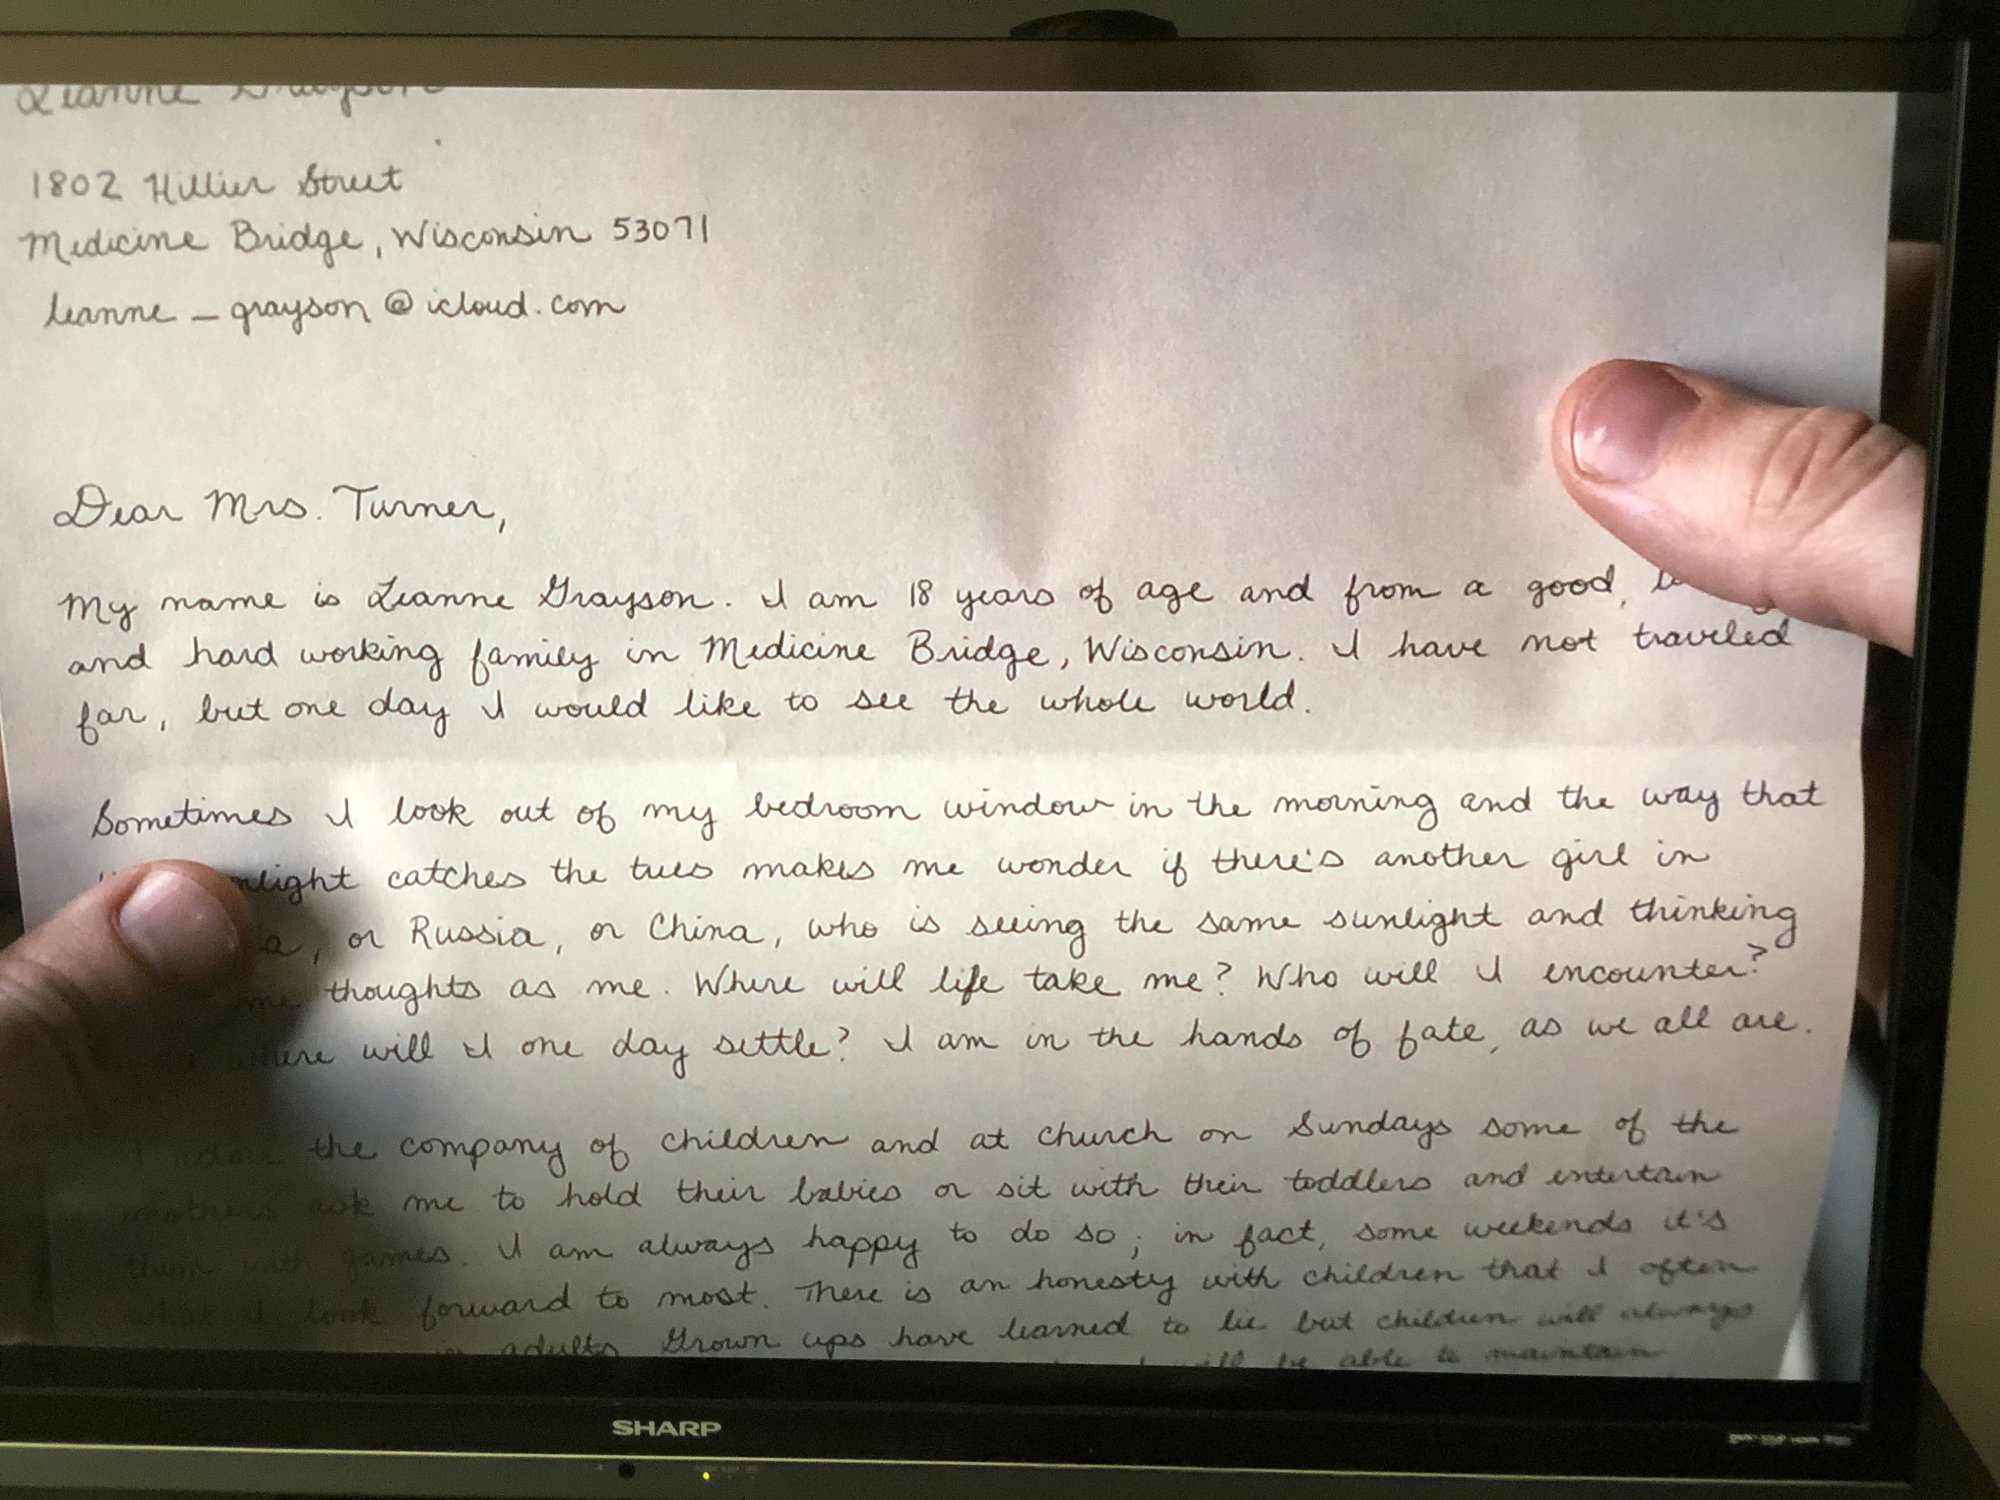 Leanne Grayson
1802 Hillier Street
Medicine Bridge, Wisconsin 53071
leanne_grayson@icloud.com
Dear Mrs. Turner,
My name is Leanne Grayson. I am 18 years of age and from a good,
and hard working family in Medicine Bridge, Wisconsin. I have not traveled
far, but one day I would like to see the whole world.
Sometimes I look out of my bedroom window in the morning and the way that
catches the trees makes me wonder if there's another girl in
or Russia, or China, who is seeing the same sunlight and thinking
thoughts as me. Where will life take me? Who will I encounter?
where will I one day settle? I am in the hands of fate, as we all are.
I adore the company of children and at church on Sundays some of the
mothers ask me to hold their babies or sit with their toddlers and entertain
them with games. I am always happy to do so; in fact, some weekends it's
what I look forward to most. There is an honesty with children that I often
adults. Grown ups have learned to lie but children will always
will be able to maintain
SHARP